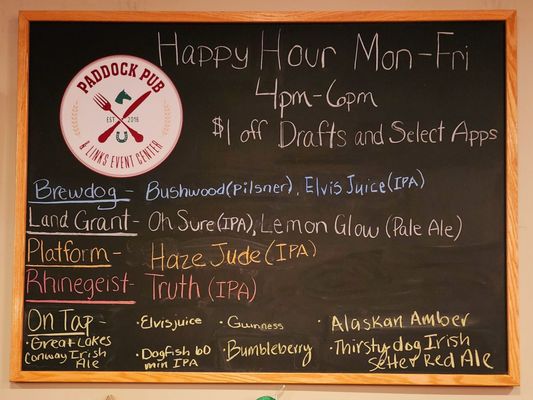 PADDOCK PUB
EST 2018
& LINKS EVENT CENTER
Happy Hour Mon-Fri
4pm-6pm
$1 off Drafts and Select Apps
Brewdog - Bushwood(Pilsner), Elvis Juice(IPA)
Land Grant- Oh Sure(IPA), Lemon Glow (Pale Ale)
Platform- Haze Jude (IPA)
Rhinegeist- Truth (IPA)
On Tap-
·Great Lakes
Conway Irish
Ale
·Elvisjuice
·Dogfish 60
min IPA
·Guinness
·Bumbleberry
·Alaskan Amber
·Thirsty dog Irish
Setter Red Ale